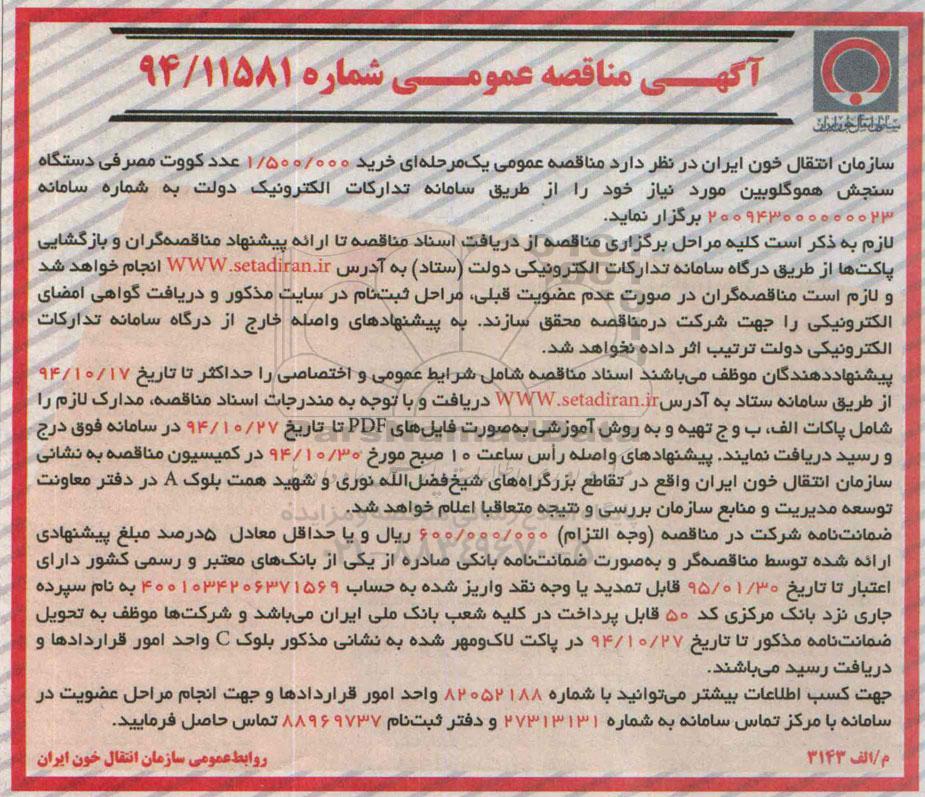 آگهی مناقصه عمومی شماره ۹۴/۱۱۵۸۱
سازمان انتقال خون ایران
سازمان انتقال خون ایران در نظر دارد مناقصه عمومی یک‌مرحله‌ای خرید ۱/۵۰۰/۰۰۰ عدد کووت مصرفی دستگاه
سنجش هموگلوبین مورد نیاز خود را از طریق سامانه تدارکات الکترونیک دولت به شماره سامانه
۲۰۰۹۴۳۰۰۰۰۰۰۰۰۲۳ برگزار نماید.
لازم به ذکر است کلیه مراحل برگزاری مناقصه از دریافت اسناد مناقصه تا ارائه پیشنهاد مناقصه‌گران و بازگشایی
پاکت‌ها از طریق درگاه سامانه تدارکات الکترونیکی دولت (ستاد) به آدرس WWW.setadiran.ir انجام خواهد شد
و لازم است مناقصه‌گران در صورت عدم عضویت قبلی، مراحل ثبت‌نام در سایت مذکور و دریافت گواهی امضای
الکترونیکی را جهت شرکت درمناقصه محقق سازند. به پیشنهادهای واصله خارج از درگاه سامانه تدارکات
الکترونیکی دولت ترتیب اثر داده نخواهد شد.
پیشنهاددهندگان موظف می‌باشند اسناد مناقصه شامل شرایط عمومی و اختصاصی را حداکثر تا تاریخ ۹۴/۱۰/۱۷
از طریق سامانه ستاد به آدرس WWW.setadiran.ir دریافت و با توجه به مندرجات اسناد مناقصه، مدارک لازم را
شامل پاکات الف، ب و ج تهیه و به روش آموزشی به‌صورت فایل‌های PDF تا تاریخ ۹۴/۱۰/۲۷ در سامانه فوق درج
و رسید دریافت نمایند. پیشنهادهای واصله رأس ساعت ۱۰ صبح مورخ ۹۴/۱۰/۳۰ در کمیسیون مناقصه به نشانی
سازمان انتقال خون ایران واقع در تقاطع بزرگراه‌های شیخ‌فضل‌الله نوری و شهید همت بلوک A در دفتر معاونت
توسعه مدیریت و منابع سازمان بررسی و نتیجه متعاقبا اعلام خواهد شد.
ضمانت‌نامه شرکت در مناقصه (وجه التزام) ۶۰۰/۰۰۰/۰۰۰ ریال و یا حداقل معادل ۵درصد مبلغ پیشنهادی
ارائه شده توسط مناقصه‌گر و به‌صورت ضمانت‌نامه بانکی صادره از یکی از بانک‌های معتبر و رسمی کشور دارای
اعتبار تا تاریخ ۹۵/۰۱/۳۰ قابل تمدید یا وجه نقد واریز شده به حساب ۴۰۰۱۰۳۴۲۰۶۳۷۱۵۶۹ به نام سپرده
جاری نزد بانک مرکزی کد ۵۰ قابل پرداخت در کلیه شعب بانک ملی ایران می‌باشد و شرکت‌ها موظف به تحویل
ضمانت‌نامه مذکور تا تاریخ ۹۴/۱۰/۲۷ در پاکت لاک‌ومهر شده به نشانی مذکور بلوک C واحد امور قراردادها و
دریافت رسید می‌باشند.
جهت کسب اطلاعات بیشتر می‌توانید با شماره ۸۲۰۵۲۱۸۸ واحد امور قراردادها و جهت انجام مراحل عضویت در
سامانه با مرکز تماس سامانه به شماره ۲۷۳۱۳۱۳۱ و دفتر ثبت‌نام ۸۸۹۶۹۷۳۷ تماس حاصل فرمایید.
م/الف ۳۱۴۳
روابط‌عمومی سازمان انتقال خون ایران